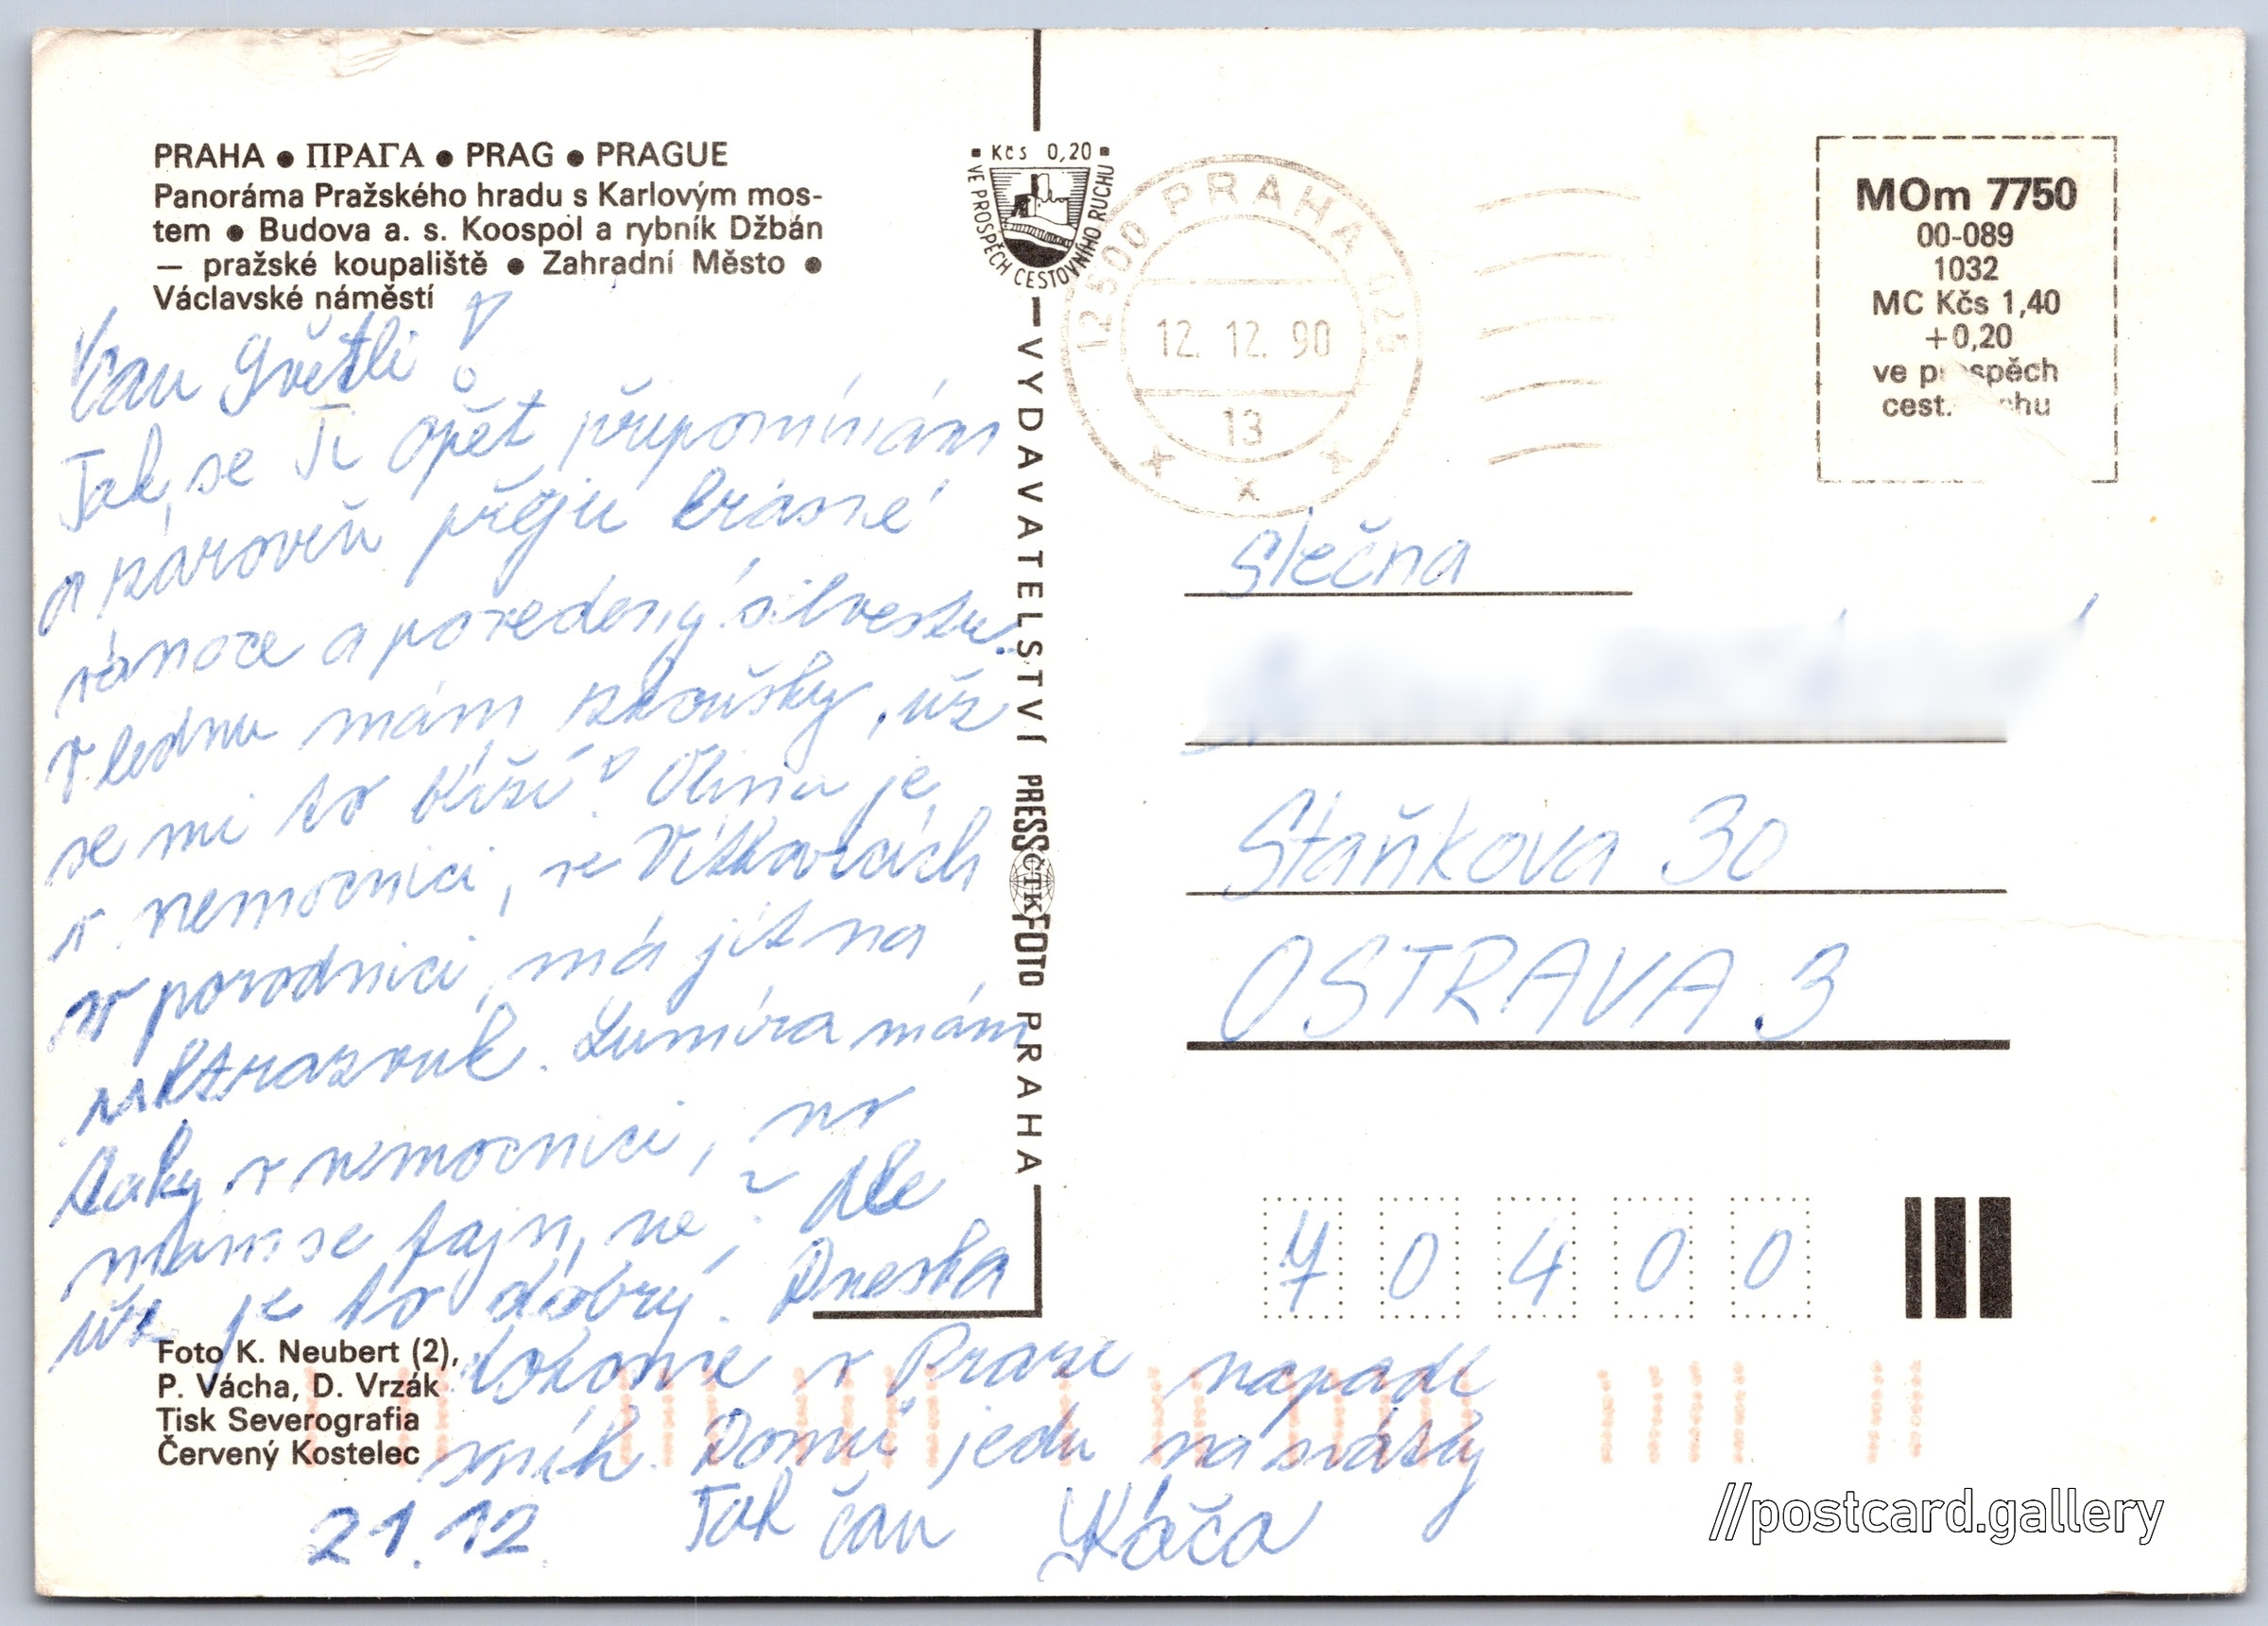 PRAHA ● ПРАГА ● PRAG ● PRAGUE
Panoráma Pražského hradu s Karlovým mos-
tem ● Budova a. s. Koospol a rybník Džbán
— pražské koupaliště ● Zahradní Město ●
Václavské náměstí
Čau Gvětli!
Tak se Ti opět připomínám
a zároveň přeju krásné
vánoce a povedený silvestr.
V lednu mám zkoušky, už
se mi to blíží! Olina je
v nemocnici, ve Vítkovicích
v porodnici, má jít na
ultrazvuk. Lumíra mám
taky v nemocnici, no
mám se fajn, ne? Ale
už je to dobrý. Dneska
dokonce v Praze napadl
sníh. Domů jedu na svátky
21.12. Tak čau Káča
Foto K. Neubert (2),
P. Vácha, D. Vrzák
Tisk Severografia
Červený Kostelec
Kčs 0,20
VE PROSPĚCH CESTOVNÍHO RUCHU
VYDAVATELSTVÍ PRESSFOTO PRAHA
ČTK
12500 PRAHA 025
12. 12. 90
13
MOm 7750
00-089
1032
MC Kčs 1,40
+0,20
ve prospěch
cest. ruchu
Slečna
Staňkova 30
OSTRAVA 3
70400
//postcard.gallery